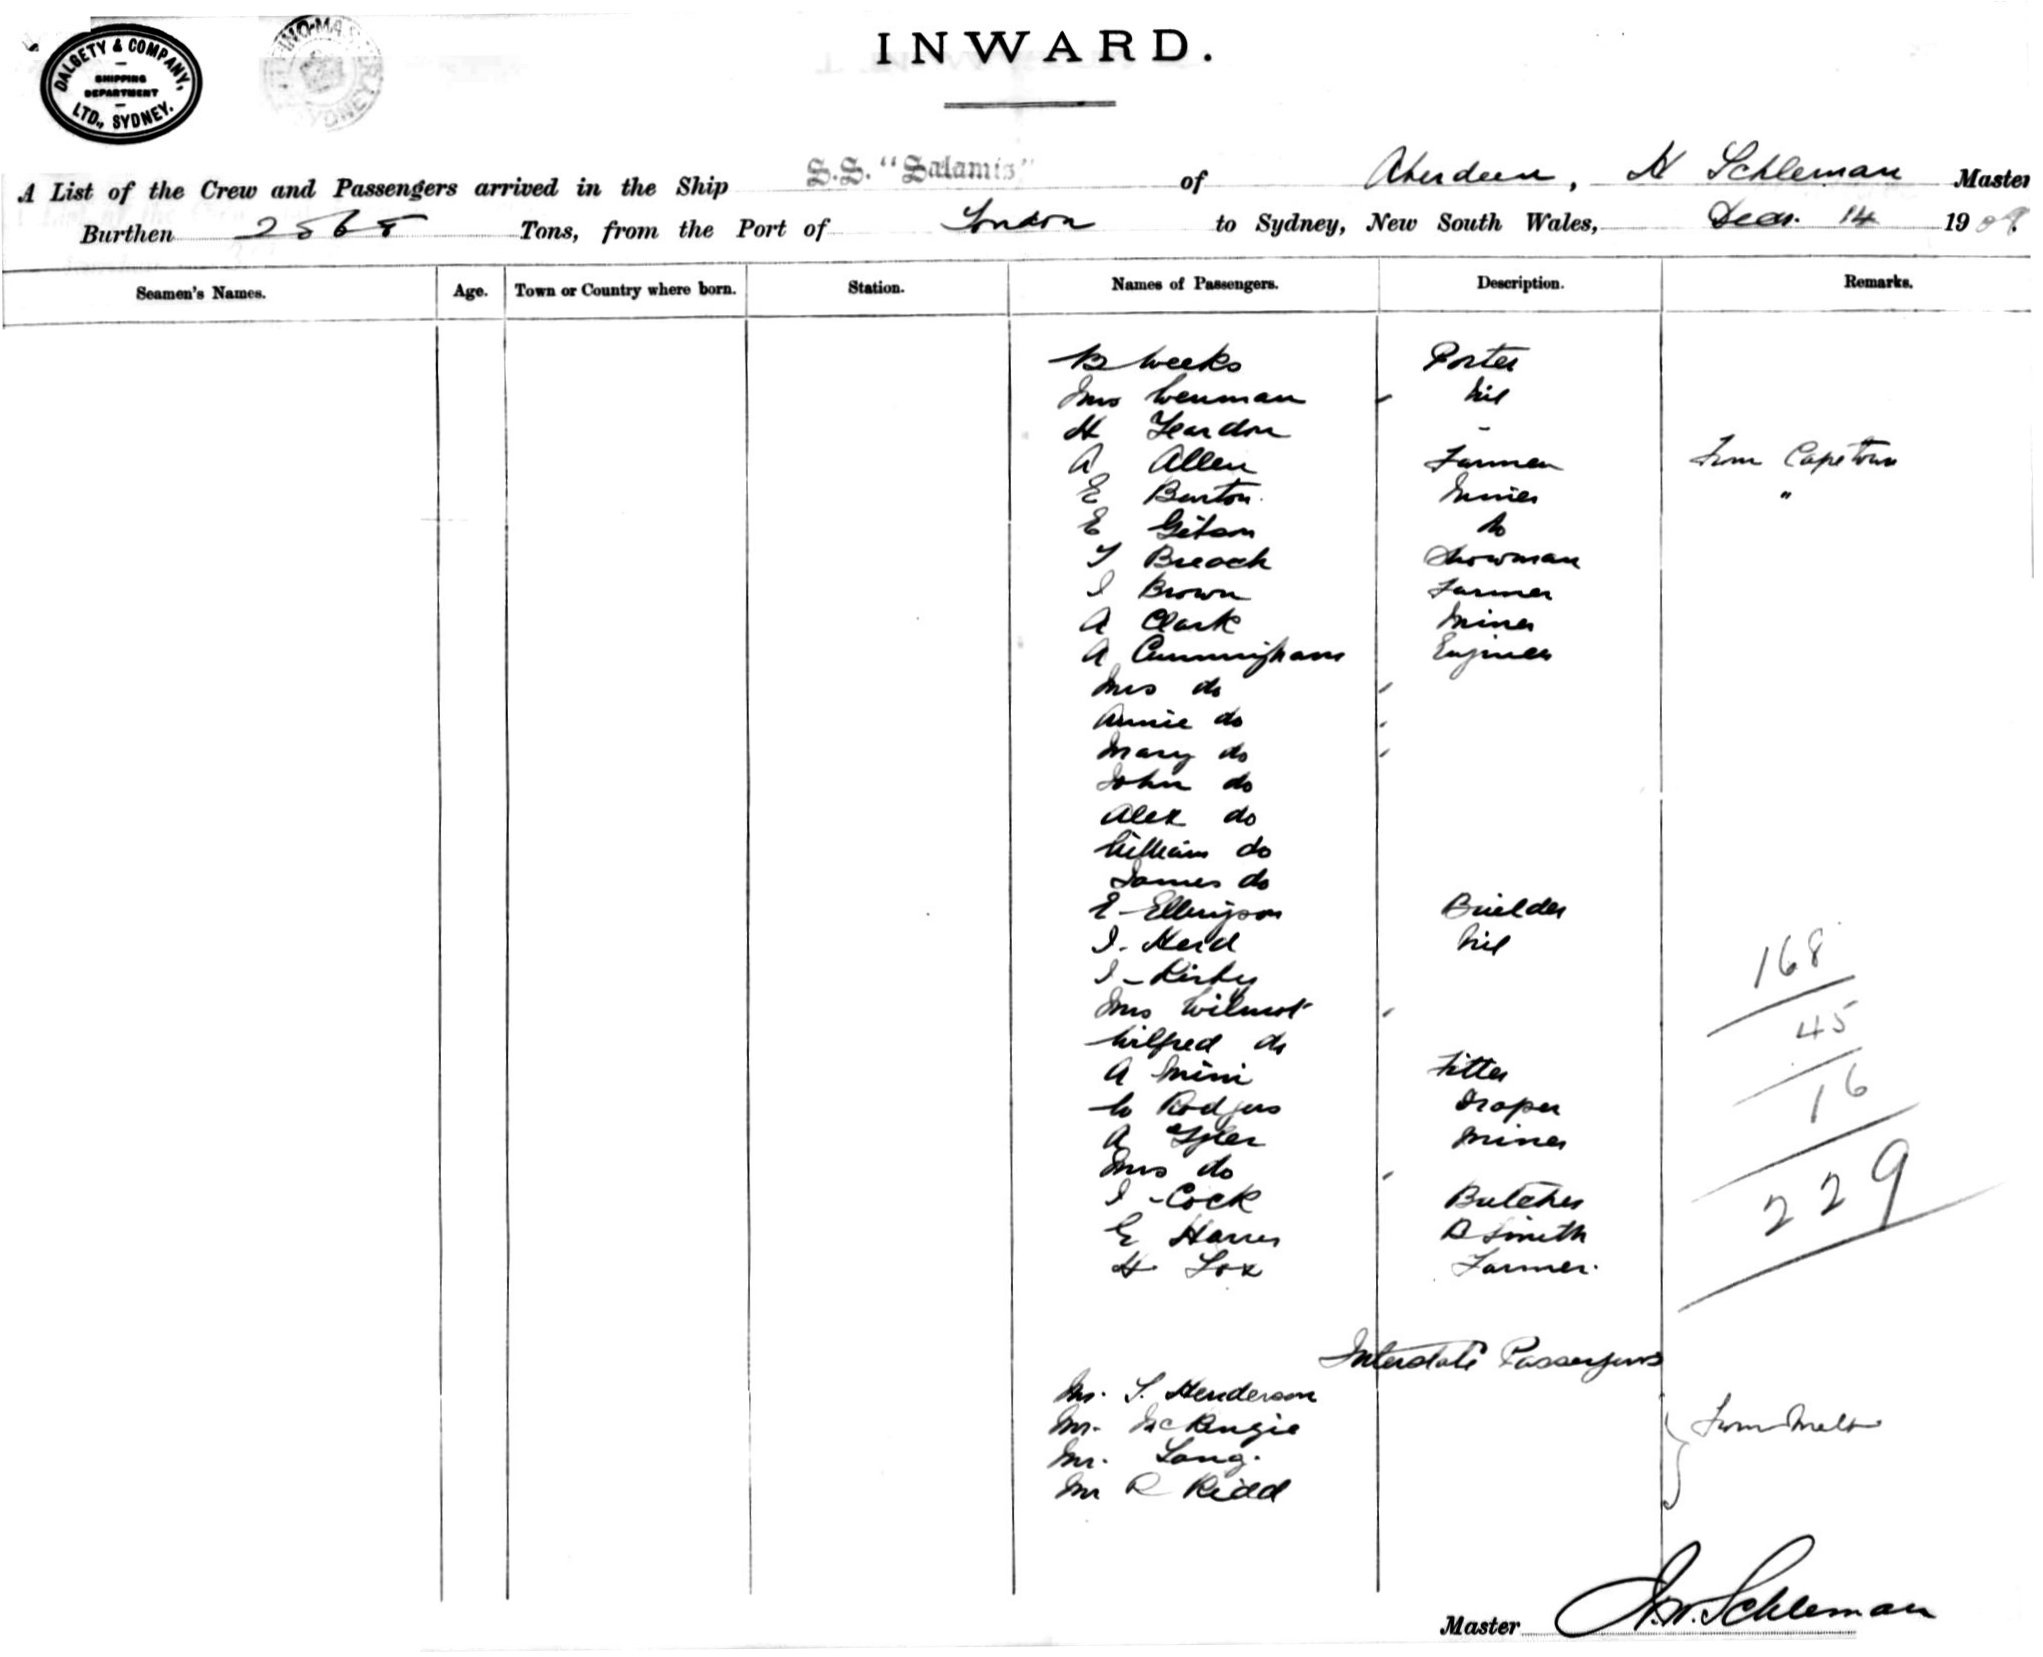 DALGETY & COMPANY,
SHIPPING
DEPARTMENT
LTD., SYDNEY.
INWARD.
A List of the Crew and Passengers arrived in the Ship S.S. "Salamis" of Aberdeen, H Schleman Master
Burthen Tons, from the Port of London to Sydney, New South Wales, Decr. 14 190
Seamen's Names. Age. Town or Country where born. Station. Names of Passengers. Description. Remarks.
B Weeks Porter
Mrs Wenman nil
H Yeardon -
A Allen Farmer From Capetown
E Burton Miner "
E Gibson do
T Breach Showman
J Brown Farmer
A Clark Miner
A Cunningham Engineer
Mrs do
Annie do
Mary do
John do
Alex do
William do
James do
E Ellingson Builder
J. Herd Nil
J - Kirby
Mrs Wilmot
Wilfred do
A Mini Fitter
W Rodgers Draper
A Miner
Mrs do
J - Cock Butcher
E Harris B Smith
H. Fox Farmer.
168
45
16
229
Interstate Passengers
Mr. S. Henderson
Mr. McKenzie From Melb
Mr. Lang.
Mr R Kidd
Master H.W. Schleman